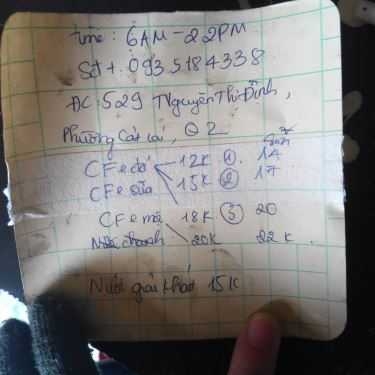 time: 6AM - 22PM
Sđt: 0935184338
ĐC: 529 Nguyễn Thị Định,
Phường Cát Lái, Q2
CFe đá 12K ① 14
CFe sữa 15K ② 17
CFe 18K ③ 20
chanh 20K 22K.
Nước giải khát 15K